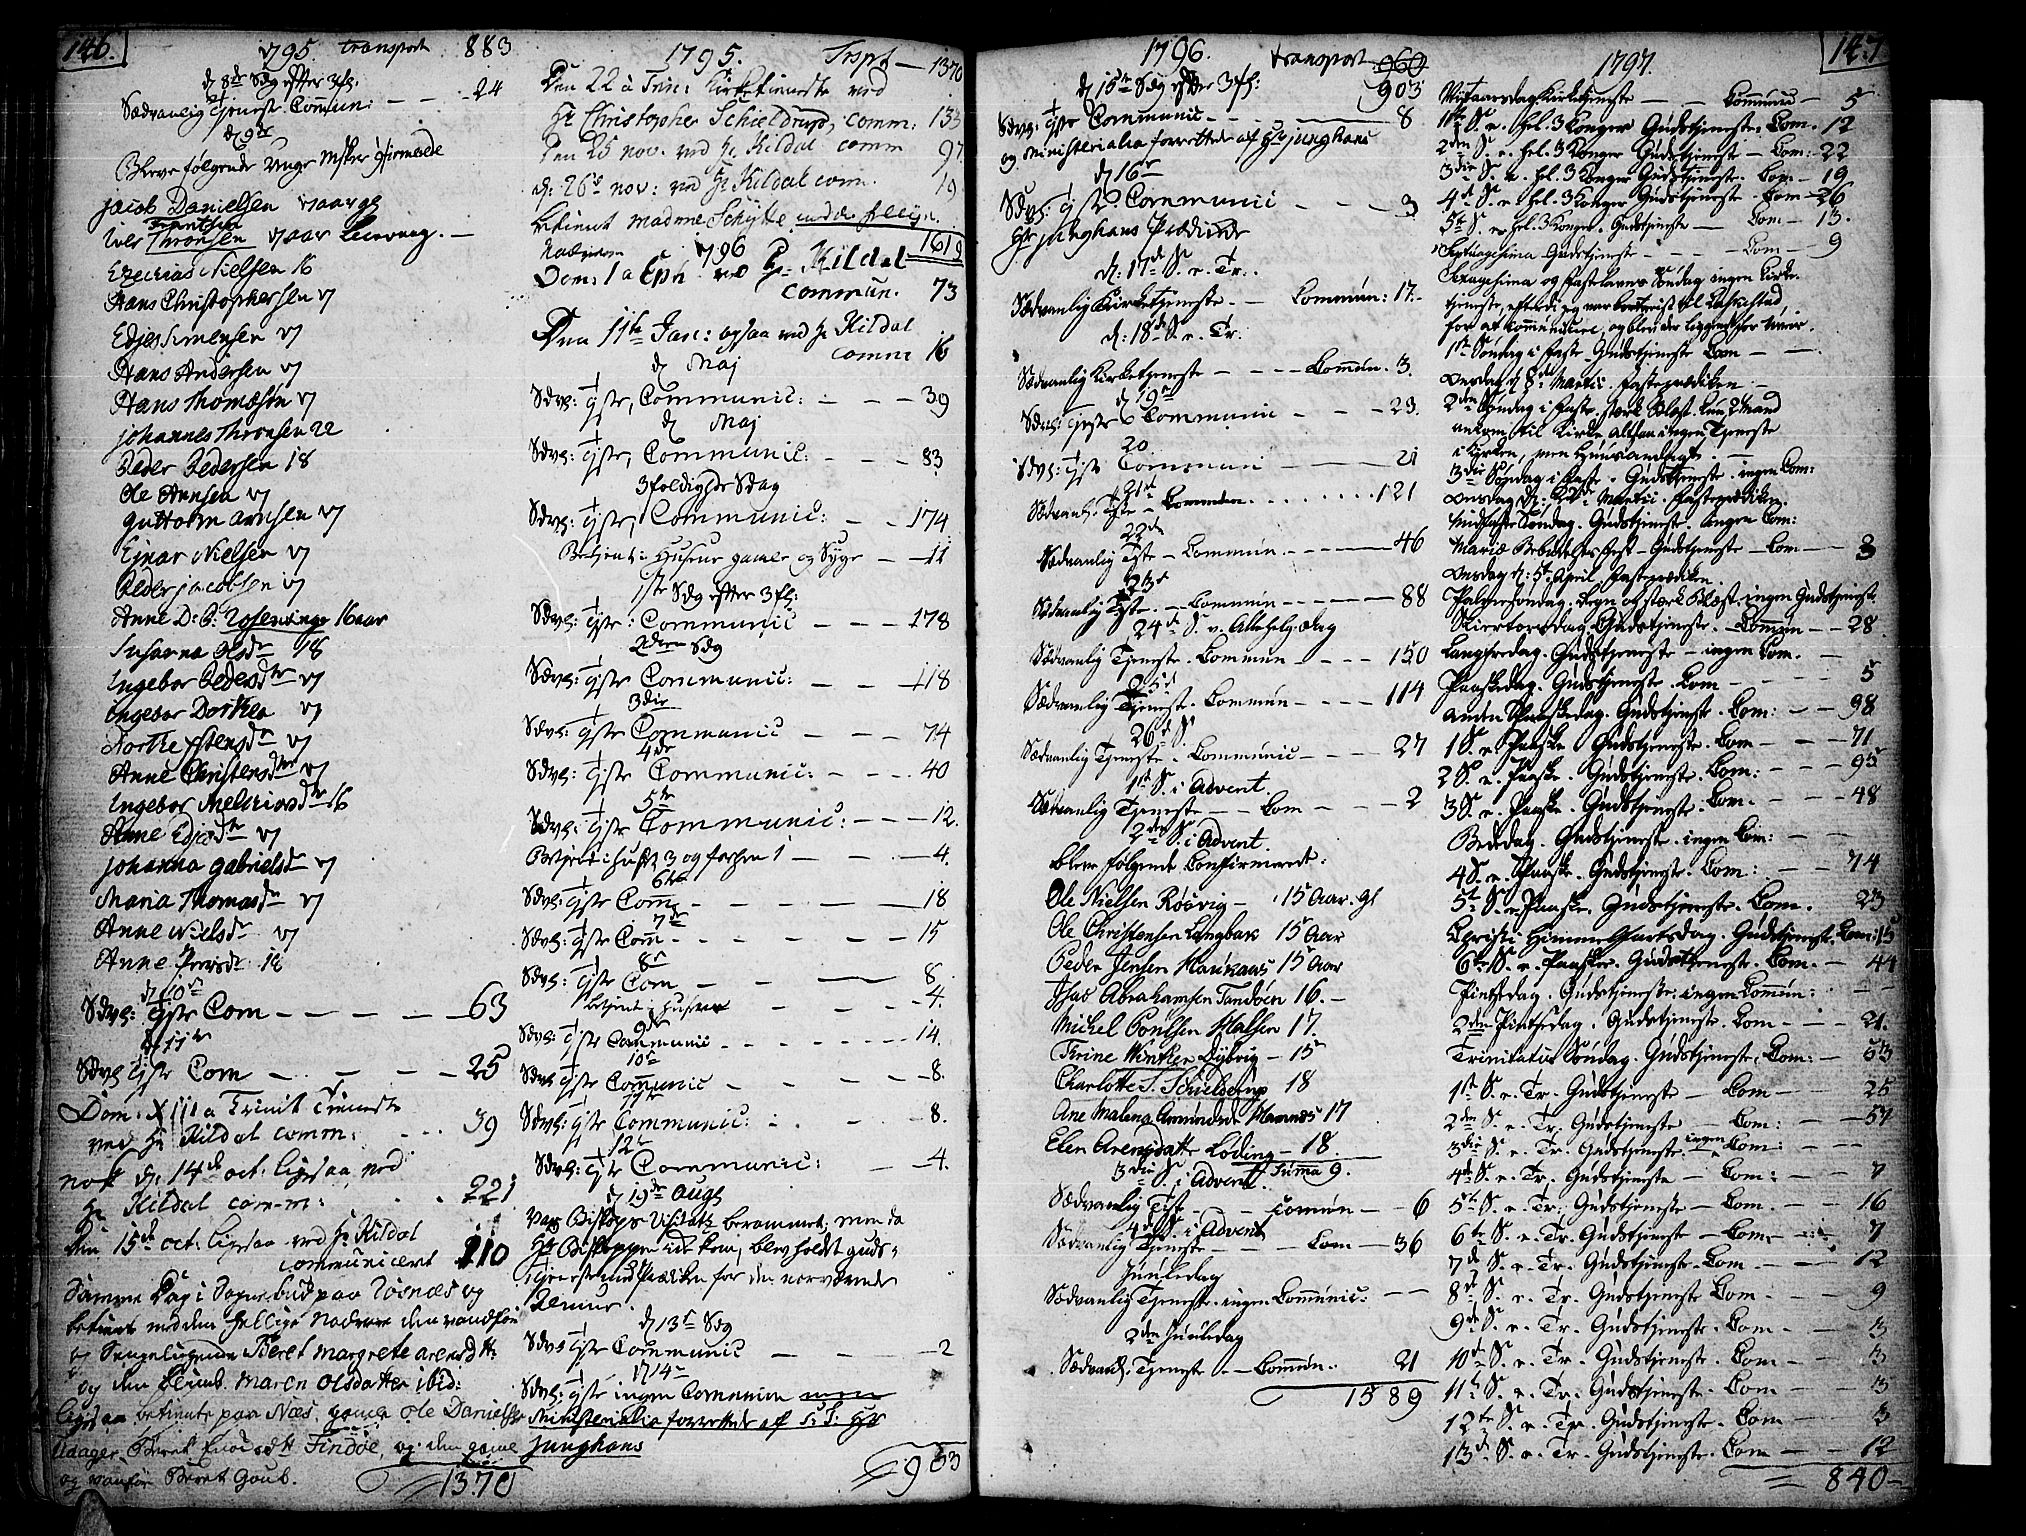 146.
1795. transport 883
d 8de Sdg efter 3fh:
Sædvanlig Tjenest. Commun: — — 24
d 9de
Bleve følgende unge
Jacob Danielsen 17 aar gl
Frantsen
Iver Thronsen 17 aar
Ezechias Nielsen 16
Hans Christophersen 17
Edjes Simensen 17
Hans Andersen 17
Hans Thomesen 17
Johannes Thronsen 22
Peder Pedersen 18
Ole Arnsen 17
Guttorm Arnsen 17
Ejnar Nielsen 17
Peder Jacobsen 17
Anne D: B: Rosenvinge 16 aar
Susanna Olsdr 18
Ingebor Pedersdtr 17
Ingebor Dorthea 17
Dorthe 17
Anne Christensdtr 17
Ingebor Melchiorsdr 16
Anne Edjesdr 17
Johanna Gabrielsdr 17
Maria Thomasdr 17
Anne Nielsdr 17
Anne 18
d 10de
Sdvl: tjste Com — — — — 63
d 11te
Sdvl tjste Com — — — — 25
Dom: XIII a Trinit Tieneste
ved Hr Kildal comm: - - - 39
nok d: 14de oct: ligesaa ved
Hr Kildal comm: . . 221
Den 15de oct: ligesaa ved Hr Kildal
communicert 110
Samme Dag i Sognebud paa Tosnæs og
betient med den hellige Nadvere den vanføre
og Sengeliggende Beret Margrete Arensdtr:
og den Maren Olsdatter ibid:
ligesaa betiente paa Næs, gamle Ole Danielsen
Beret Findøe, og den gamle
og vanføre Beret Goub.
1370
1795. Trspt — 1370
Den 22 a Trin: Kirketieneste ved
Hr Christopher Schieldrup, comm: 133
Den 25 nov. ved Hr Kildal comm 97
d: 26de nov: ved Hr Kildal com. 19
betient Madme Schytte
1619
1796
Dom: 1 a Eph ved Hr: Kildal
commun. 73
Den 11te Jan: ogsaa ved Hr Kildal
comm 16
d Maj
Sdvl: tjste, Communic: — — — 39
d Maj
Sdvl: tjste, Communic: — — — 83
3foldigheds Sdag
Sdvl: tjste, Communic: — — 174
Betjent i Husene gamle og Syge — — 11
1ste Sdg efter 3fh:
Sdvl: tjste: Communic — — — 178
2den Sdg
Sdvl: tjste Communic: — — 118
3die
Sdvl: tjste Communic — — — 74
4de
Sdvl: tjste Communic: — — — 40
5te
Sdvl: tjste Communic: — — — 12.
Betjent i Huset 3 og 1 — — — 4.
6te
Sdvl: tjste Com — — — — 18
7de
Sdvl: tjste Com — — — — 15
8de
Sdvl: tjste Com — — — 8.
betjent i Husene — — 4.
9de
Sdvl: tjste Communic — — — 14.
10de
Sdvl tjste Communic — — — 8.
11te
Sdvl: tjste Communic: — — 8.
12te
Sdvl: tjste Communic: — — 4.
d 19de Augs
var Biskops Visitats berammet; men da
Hr Biskoppen ide kom, blev holdt guds=
tjeneste med Prædiken for den nærværende
Almue.
d 13de Sdg
Sdvl tjste Communic — — — 2
d 14de
Sdvl: tjste ingen Communion
Ministerialia forrettede af S: T: Hr
Junghans
903
147
1796. transport 960
903
d 15de Sdg efter 3fh:
Sdvl: tjste Communic — — — 8
og Ministerialia forrettede af Hr Junghans
d 16de
Sdvl: tjste Communic — — — 3
Hr Junghans Prædikede
d: 17de S. e. Tr.
Sædvanlig Kirketjeneste. — Commún: 17.
d: 18de S. e. Tr.
Sædvanlig Kirketjeneste — — — Commún. 3.
d 19de
Sdvl: tjeste Communic — — — 23.
20
Sdvl: tjste Commun — — — 21
21de
Sædvanl: Tjste — Commún . . . . . . . 121
22de
Sædvanlig Tjste — Commún. — — — 46
23de
Sædvanlig Tjste. — Commún — — — 88
24de S. v. Allehelg: dag
Sædvanlig Tjeneste. Commun — — — 150
25de
Sædvanlig Tjeneste. Commún — — — 114
26de S.
Sædvanlig Tjeneste. Commúnic — — 27
1ste S. i Advent.
Sædvanlig Tjeneste — — Com — — — 2
2den S. i Advent.
bleve følgende Confirmerede:
Ole Nielsen Røsvig — 15 Aar. gl
Ole Christensen Langbak 15 Aar
Peder Jensen 15 Aar
Isac Abrahamsen Tandøen 16. —
Michel Poulsen Malsen 17.
Trine Winther Dybvig — 15
Charlotte S. Schieldrup 18
Ane Malena Amundsdr Mannes 17
Elen Arensdatter Løding — 18.
Summa 9.
3die S. i Advent
Sædvanlig Tjste — — — Commún — 6
4de S. i Advent
Sædvanlig Tjeneste — — — Com — 36
Juuledag
Sædvanlig Tjeneste. ingen Commúnic: — —
2den Juuledag
Sædvanl: Tjeneste — Commún: 21
1589
1797.
Nytaarsdag Kirketjeneste — — Commúnic — 5
1ste S. e. hel. 3 Konger Gudstjeneste. Com. 12
2den S. e. hel. 3 Konger Gudstjeneste — Com: 22
3die S. e. hel. 3 Konger Gudstjeneste. Com — 19
4de S. e. hel. 3 Konger Gudstjeneste. Com — 26
5te S. e. hel. 3 Konger. Gudstjeneste — Com — 13.
Septuagesima Gudstjeneste — — — Com — 9
Sexagesima og Fastelavns Søndag ingen Kirke-
tjeneste, efterdi jeg var bortreist til
for at
1ste Søndag i Faste. Gudstjeneste Com — — —
Onsdag d 8de Martii. Fasteprædiken. —
2den Søndag i Faste. stærk Blæst. kun 2 Mand
ankom til Kirke altsaa ingen Tjeneste
i Kirken, men Huusandagt. —
3die Søndag i Faste. Gudstjeneste. ingen Com:
Onsdag d: 22de Martii. Fasteprædiken.
Midfaste Søndag. Gudstjeneste. ingen Com:
Mariæ Bebudelses Fest — Gudstjeneste — Com — 3
Onsdag d: 5te April Fasteprædiken
Palmesøndag. Regn og stærk Blæst. ingen Gudstjenest.
Skiertorsdag Gudstjeneste. — Commún — — 28
Langfredag. Gudstjeneste — ingen Com. —
Paaskedag. Gudstjeneste. Com — — — — 5
Anden Paaskedag. Gudstjeneste. Com: — — 98
1 S. e. Paaske. Gudstjeneste. Com — — — 71
2 S. e. Paaske. Gudstjeneste. Com: — — — 95
3 S. e. Paaske. Gudstjeneste. Com. — — — 48
Bededag. Gudstjeneste. ingen Com: — —
4 S. e. Paaske. Gudstjeneste. Com: — — 74
5te S. e. Paaske. Gudstjeneste. Com. 23
Christi Himmelfartsdag. Gudstjeneste. Com: 15
6te S. e. Paaske. Gudstjeneste. Com. — 44
Pintsdag. Gudstjeneste. ingen Commún: — —
2den Pintsdag. Gudstjeneste. Com — — — 21.
Trinitatis Søndag. Gudstjeneste. Com: — 53
1ste S. e. Tr. Gudstjeneste — Com — — 25
2den S. e. Tr. Gudstjeneste — Com: — — 57
3die S. e. Tr. Gudstjeneste ingen Com: — —
4de S. e. Tr. Gudstjeneste — Com: — — 7
5te S. e. Tr. Gudstjeneste — Com. — — 16
6te S. e. Tr. Gudstjeneste — Com. — — 7
7de S. e. Tr. Gudstjeneste. Com — — — 12
8de S. e. Tr. Gudstjeneste Com. — — — 9
9de S. e. Tr. Gudstjeneste. Com — — — 3
10de S. e. Tr. Gudstjeneste. Com — — — 3
11te S. e. Tr. Gudstjeneste. Com — — — 3
12te S. e. Tr. Gudstjeneste. Com — — — 3
13de S. e. Tr. Gudstjeneste. Com — — — 12
840